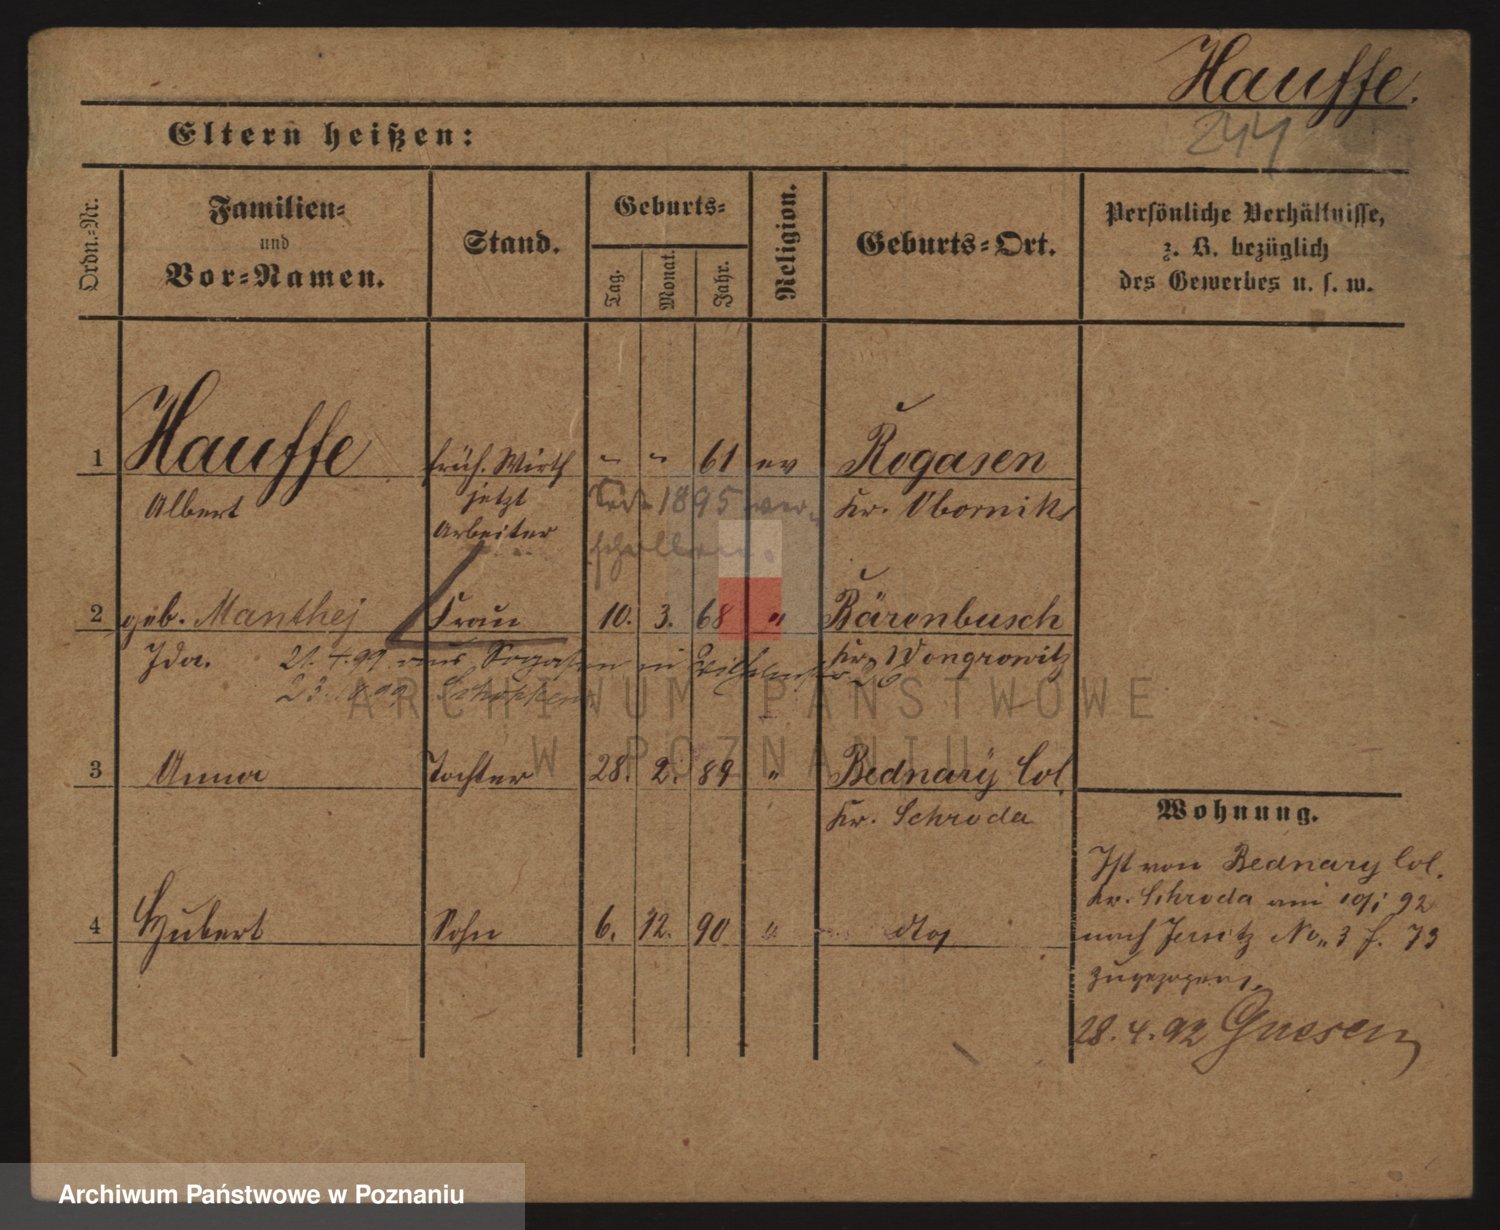 Hauffe.
244
Eltern heißen:
Ordn.-Nr.
Familien-
und
Vor-Namen.
Stand.
Geburts-
Tag.
Monat.
Jahr.
Religion.
Geburts-Ort.
Persönliche Verhältnisse,
z. B. bezüglich
des Gewerbes u. s. w.
1 Hauffe früh. Wirth " " 61 ev Rogasen
Albert jetzt Kr. Obornik
Arbeiter
Seit 1895 ver-
schollen.
2 geb. Manthej Frau 10. 3. 68 " Bärenbusch
Ida. Kr. Wongrowitz
21. 4. 99 aus Rogasen in
3 Anna Tochter 28. 2. 89 " Bednary Col.
Kr. Schroda
4 Hubert Sohn 6. 12. 90 " dto
Wohnung.
Ist von Bednary Col.
Kr. Schroda am 10/1 92
nach Jersitz No. 3 f. 73
zugezogen.
28. 4. 92 Gnesen
ARCHIWUM PAŃSTWOWE
W POZNANIU
Archiwum Państwowe w Poznaniu